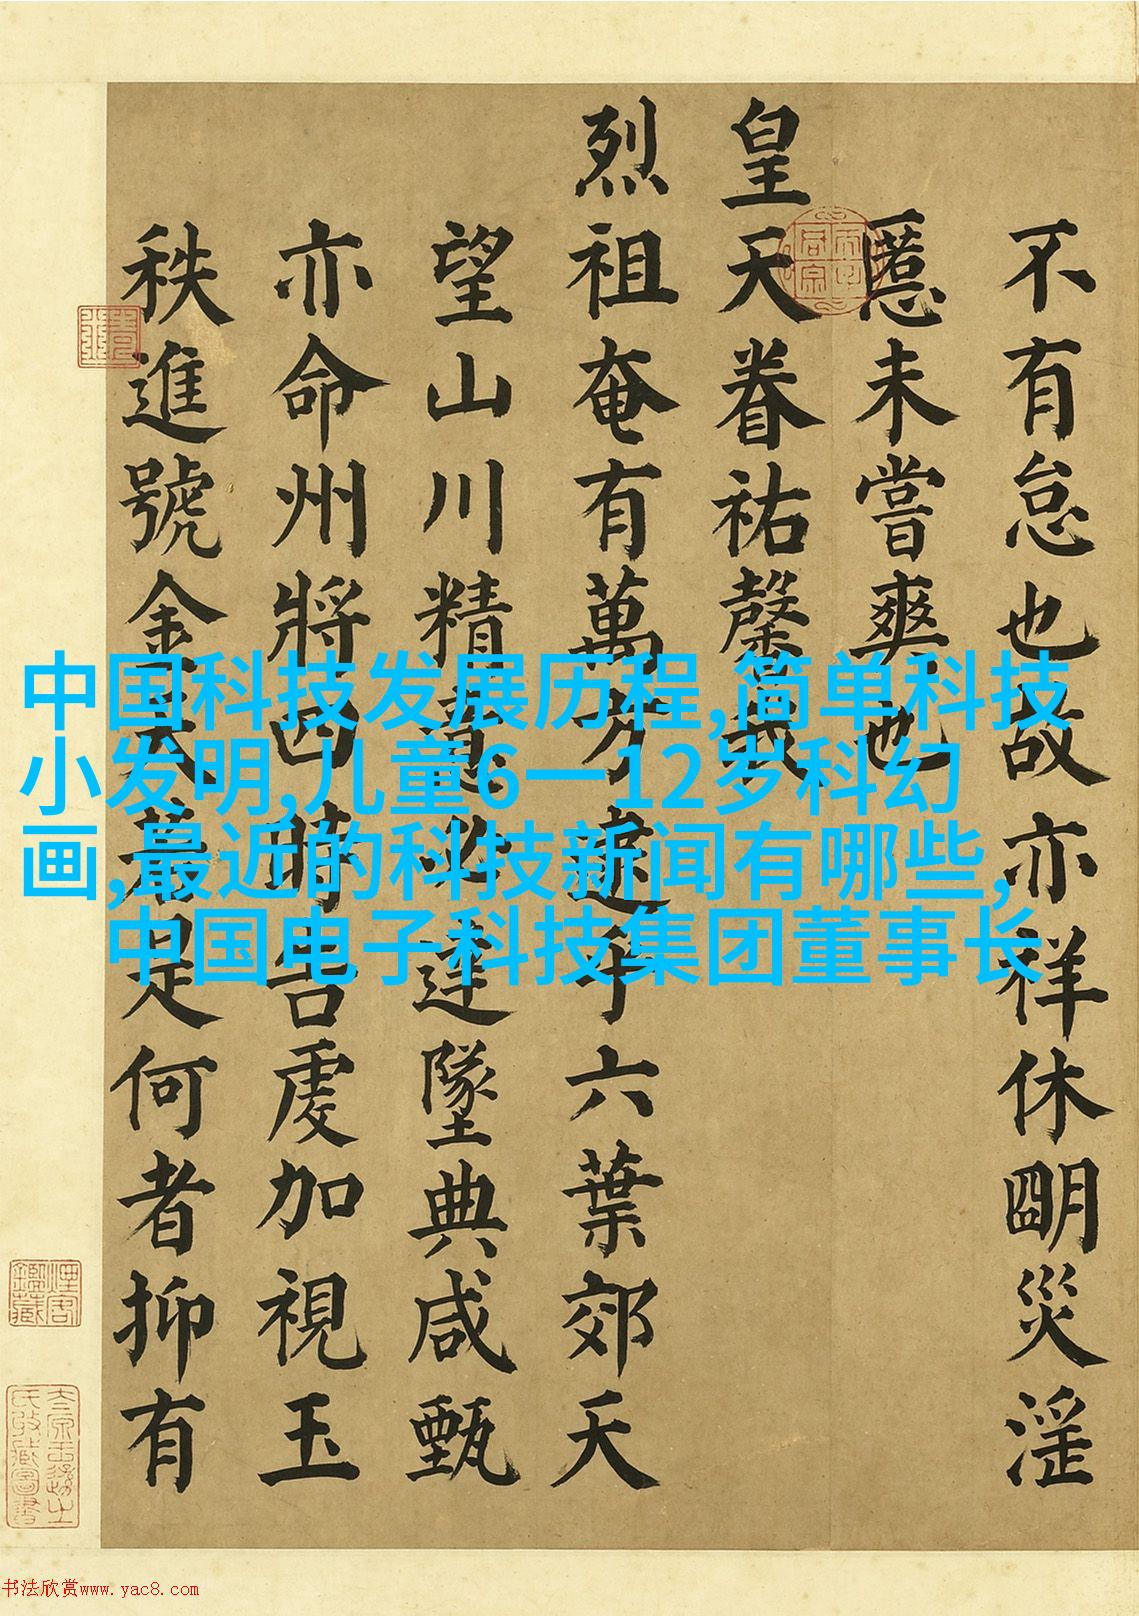 不有怠也故亦祥休朙災淫
慝未嘗爽也
皇天眷祐馨我
烈祖奄有萬方逮乎六葉郊天
望山川精意必達墜典咸甄
亦命州將四時告虔加視玉
秩進號金天若是何者抑有
中国科技发展历程,简单科技
小发明,儿童6一12岁科幻
画,最近的科技新闻有哪些,
中国电子科技集团董事长
书法欣赏www.yac8.com